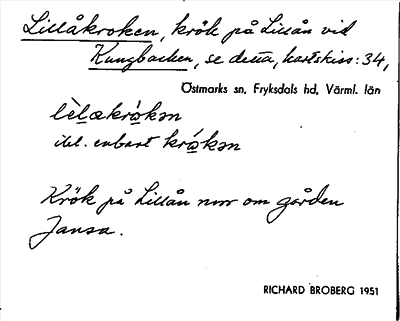 Lillåkroken, krök på Lillån vid
Kungbacken, se detta, kartskiss: 34,
Östmarks sn, Fryksdals hd, Värml. län
lèlækrókən
ibl. enbart krókən
Krök på Lillån nvr om gården
Jansa.
RICHARD BROBERG 1951